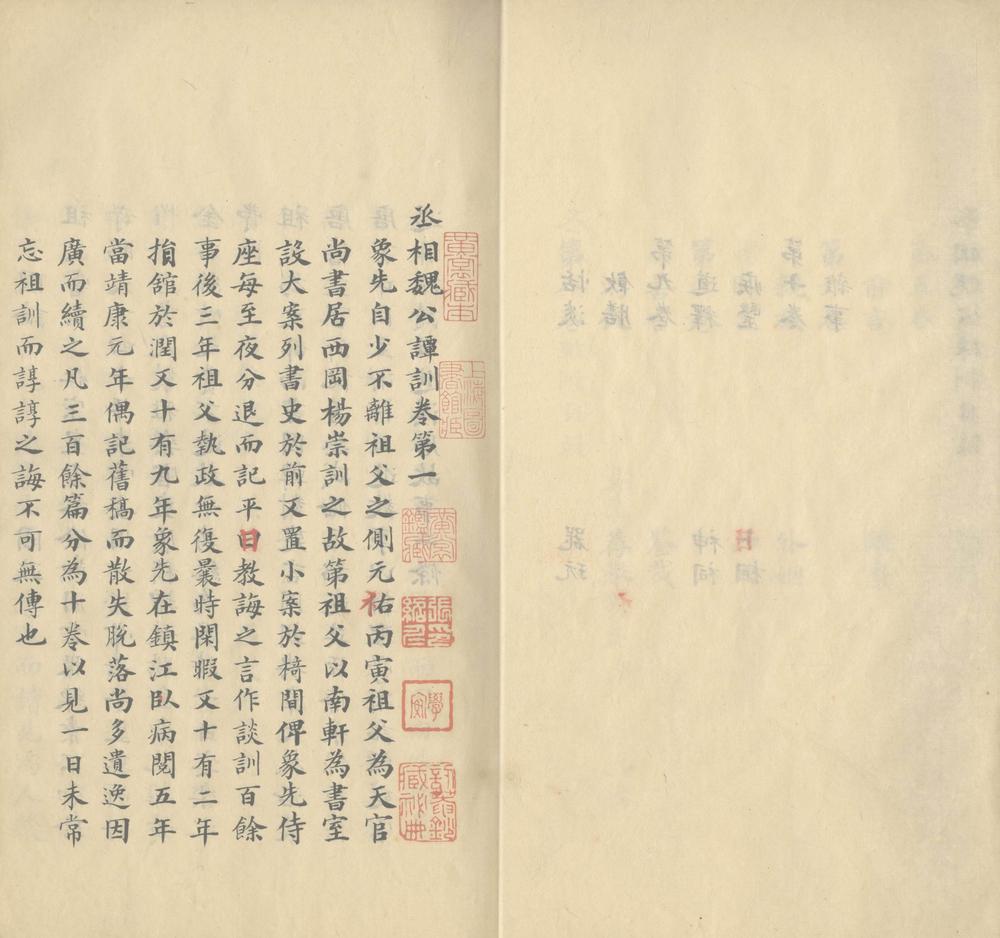 丞相魏公譚訓卷第一
象先自少不離祖父之側元祐丙寅祖父為天官
尚書居西岡楊崇訓之故第祖父以南軒為書室
設大案列書史於前又置小案於椅間俾象先侍
座每至夜分退而記平日教誨之言作談訓百餘
事後三年祖父執政無復曩時閑暇又十有二年
捐館於潤又十有九年象先在鎮江臥病閱五年
當靖康元年偶記舊稿而散失脫落尚多遺逸因
廣而續之凡三百餘篇分為十卷以見一日未常
忘祖訓而諄諄之誨不可無傳也
上海圖書館藏